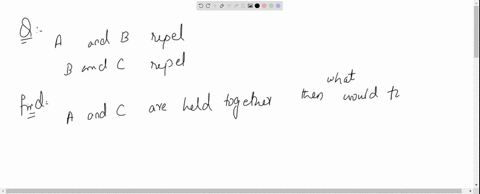 Q:- A and B repel
B and C repel
find:- A and C are held together then what would